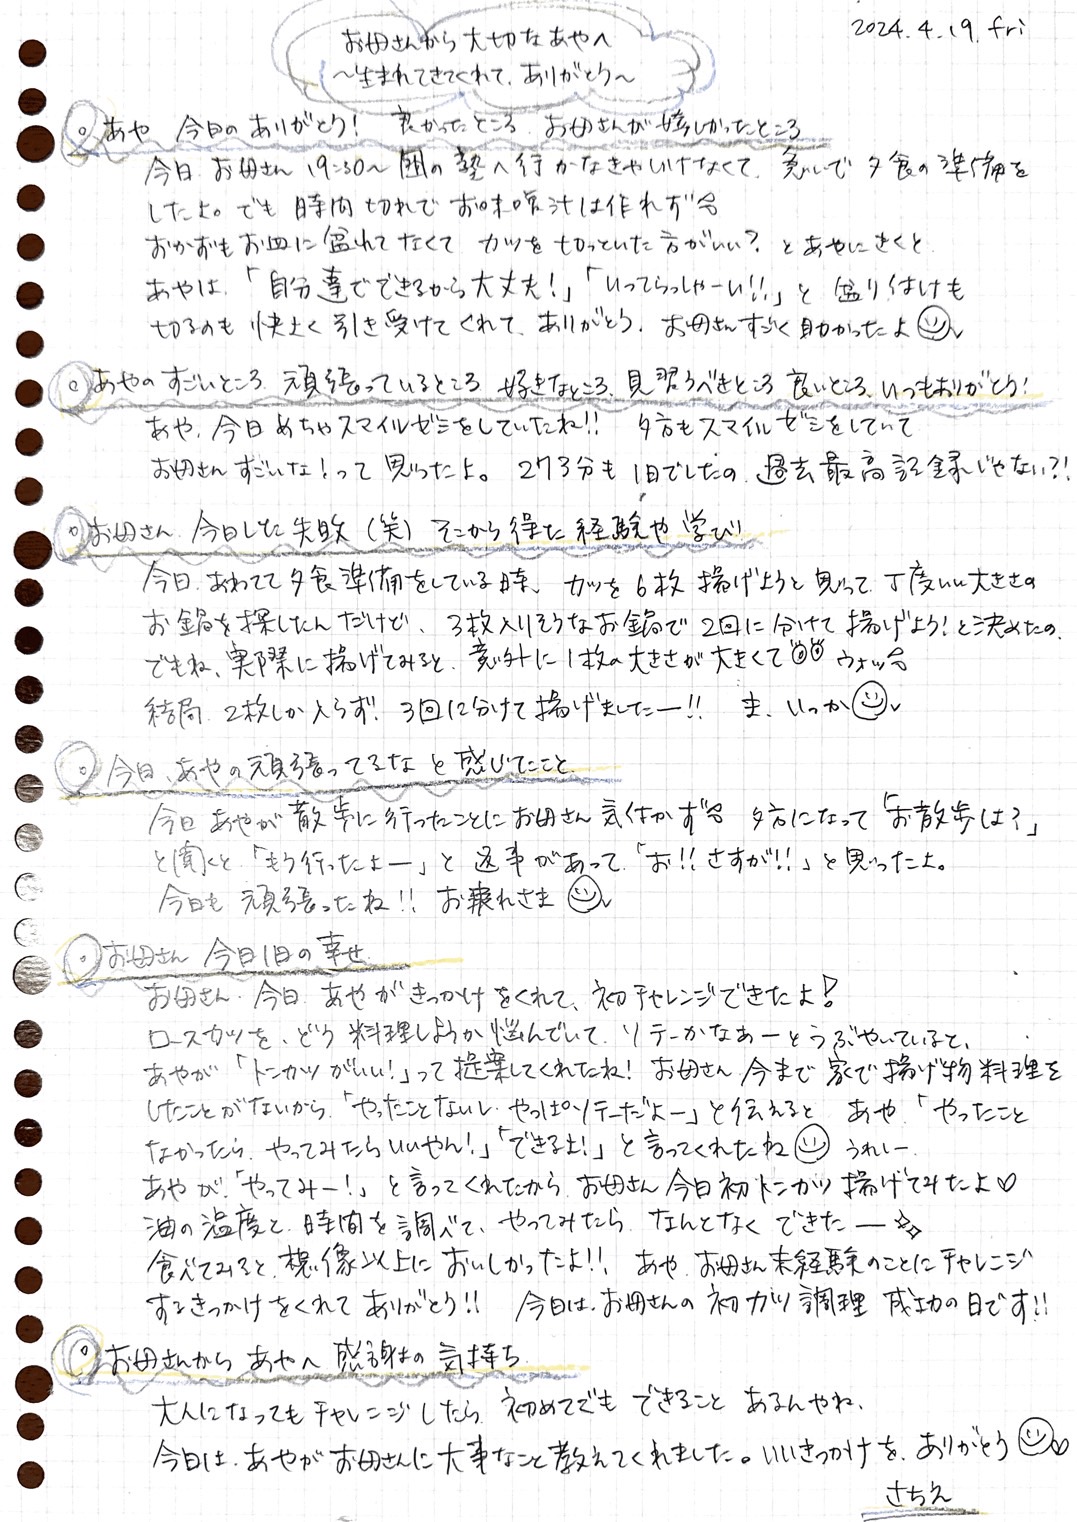 2024.4.19.fri
お母さんから大切なあやへ
～生まれてきてくれて、ありがとう～
あや 今日のありがとう! 良かったところ お母さんが嬉しかったところ
今日、お母さん 19:30～ 囲の塾へ行かなきゃいけなくて、急いで夕食の準備を
したよ。でも時間切れでお味噌汁は作れず
おかずもお皿に盛れてなくて カツを切っといた方がいい? とあやにきくと
あやは、「自分達でできるから大丈夫!」「いってらっしゃーい!!」と 盛り付けも
切るのも 快よく引き受けてくれて、ありがとう。お母さんすごく助かったよ
あやのすごいところ 頑張っているところ 好きなところ、見習うべきところ 良いところ、いつもありがとう!
あや、今日めちゃスマイルゼミをしていたね!! 夕方もスマイルゼミをしていて
お母さんすごいな!って思ったよ。273分も1日でしたの、過去最高記録じゃない?!
お母さん 今日した失敗(笑) そこから得た経験や学び
今日、あわてて夕食準備をしている時、カツを6枚揚げようと思って丁度いい大きさの
お鍋を探したんだけど、3枚入りそうなお鍋で2回に分けて揚げよう!と決めたの、
でもね、実際に揚げてみると、意外に1枚の大きさが大きくて ウォッ
結局、2枚しか入らず、3回に分けて揚げましたー!! ま、いっか
今日、あやの頑張ってるなと感じたこと
今日 あやが散歩に行ったことにお母さん気付かず 夕方になって「お散歩は?」
と聞くと、「もう行ったよー」と返事があって、「お!!さすが!!」と思ったよ。
今日も頑張ったね!! お疲れさま
お母さん 今日1日の幸せ
お母さん、今日、あやがきっかけをくれて、初チャレンジできたよ!
ロースカツを、どう料理しようか悩んでいて、ソテーかなぁーとつぶやいていると、
あやが「トンカツがいい!」って提案してくれたね! お母さん今まで家で揚げ物料理を
したことがないから、「やったことないし、やっぱソテーだよー」と伝えると あや、「やったこと
なかったら、やってみたらいいやん!」「できるよ!」と言ってくれたね うれしー
あやが、「やってみー!」と言ってくれたから お母さん今日初トンカツ揚げてみたよ♡
油の温度と、時間を調べて、やってみたら、なんとなくできたー
食べてみると、想像以上においしかったよ!! あや、お母さん未経験のことにチャレンジ
するきっかけをくれてありがとう!! 今日は、お母さんの初カツ調理 成功の日です!!
お母さんから あやへ 感謝の気持ち
大人になってもチャレンジしたら、初めてでもできること あるんやね、
今日は、あやがお母さんに大事なこと教えてくれました。いいきっかけを、ありがとう
さちえ